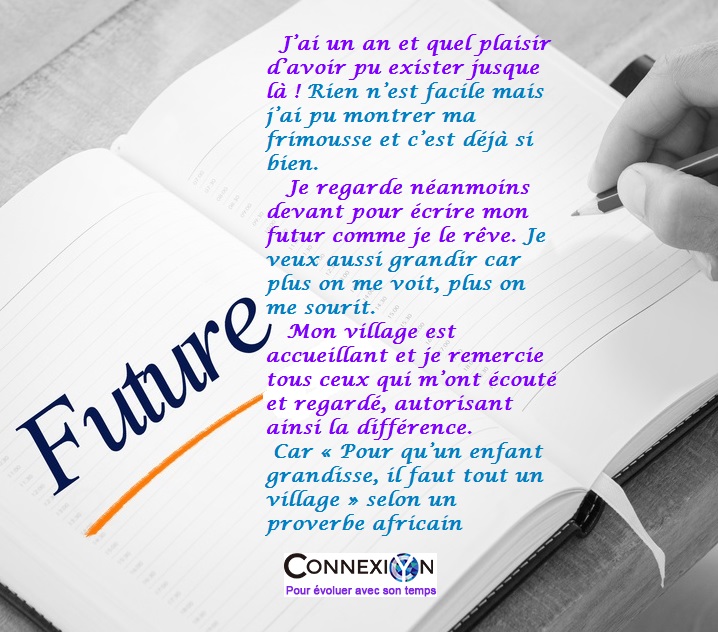 J'ai un an et quel plaisir
d'avoir pu exister jusque
là ! Rien n'est facile mais
j'ai pu montrer ma
frimousse et c'est déjà si
bien.
Je regarde néanmoins
devant pour écrire mon
futur comme je le rêve. Je
veux aussi grandir car
plus on me voit, plus on
me sourit.
Mon village est
accueillant et je remercie
tous ceux qui m'ont écouté
et regardé, autorisant
ainsi la différence.
Car « Pour qu'un enfant
grandisse, il faut tout un
village » selon un
proverbe africain
Future
CONNEXIYN
Pour évoluer avec son temps